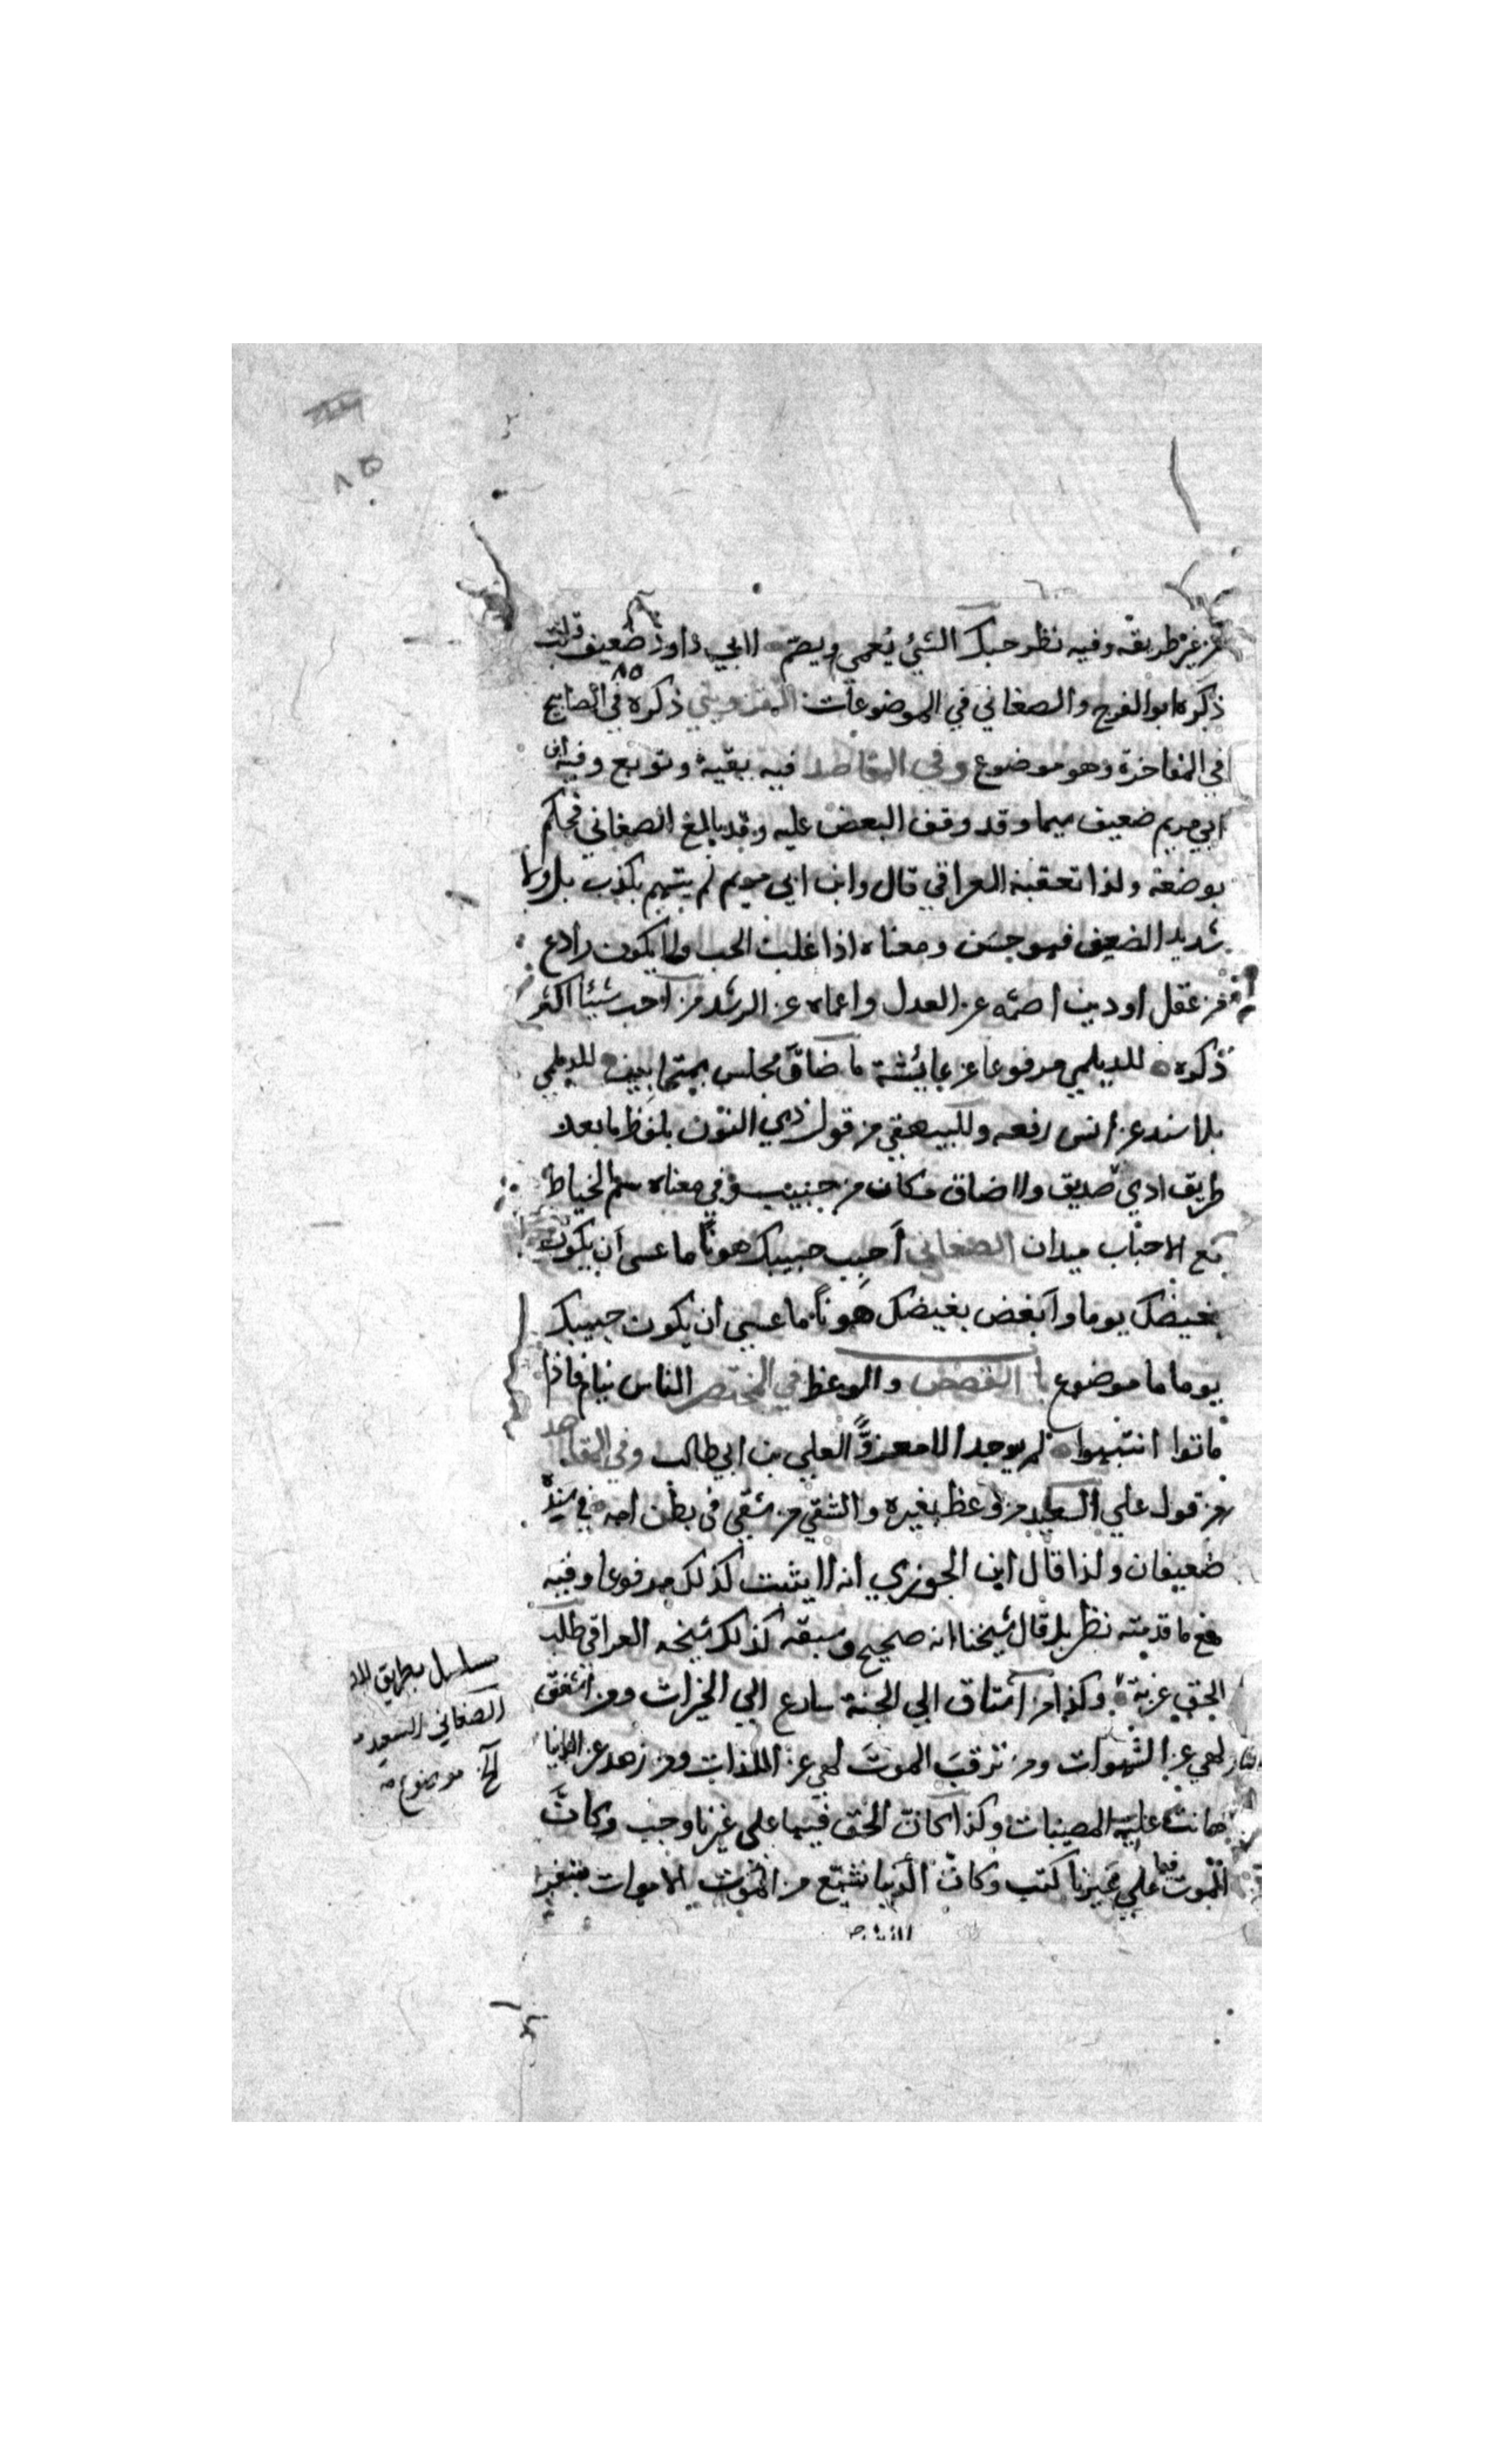 من غير طريقه وفيه نظر حبك الشيء يُعمي ويصم لابي داود ضعيف قلت
ذكره ابو الفرج والصغاني في الموضوعات القزويني ذكره في المصابيح
في المفاخرة وهو موضوع وفي المقاصد فيه بقية وتوبع وفيه ابن
ابي مريم ضعيف سيما وقد وقف البعض عليه وقد بالغ الصغاني فحكم
بوضعه ولذا تعقبه العراقي قال وابن ابي مريم لم يتهم بكذب بل
شديد الضعف فهو حسن ومعناه اذا غلبت الحب ولا يكون رادع
من عقل او دين اصمه عن العدل واعماه عن الرشد من احب شيئا اكثر
ذكره للديلمي مرفوعا عن عايشة ما ضاق مجلس بمتحابين للديلمي
بلا سند عن انس رفعه وللبيهقي من قول ذي النون بلفظ ما بعد
طريق ادي صديق ولا ضاق مكان من حبيب وفي معناه سم الخياط
مع الاحباب ميدان الصغاني أحبب حبيبك هونًا ما عسى أن يكون
بغيضك يوما وابغض بغيضك هونًا ما عسى ان يكون حبيبك
يوما ما موضوع القصص والوعظ في المختصر الناس نيام فاذا
ماتوا انتبهوا لم يوجد الا معزوًّا لعلي بن ابي طالب وفي المقاصد
من قول علي السعيد من وعظ بغيره والشقي من شقي في بطن امه في سنده
ضعيفان ولذا قال ابن الجوزي انه لا يثبت كذلك مرفوعا وفيه
مع ما قدمته نظر بل قال شيخنا انه صحيح وسبقه كذلك شيخه العراقي طلب
الحق غربة وكذا من اشتاق الى الجنة سارع الى الخيرات ومن اشفق
لهي عن الشهوات ومن ترقب الموت لهي عن اللذات ومن زهد عن الدنيا
هانت عليه المصيبات وكذا كان الحق فيها على غيرنا وجب وكان
الموت فيها على غيرنا كتب وكان الدنيا نشيع من الاموات
مسلسل بطريق
الصغاني السعيد
الخ موضوع
٨٥